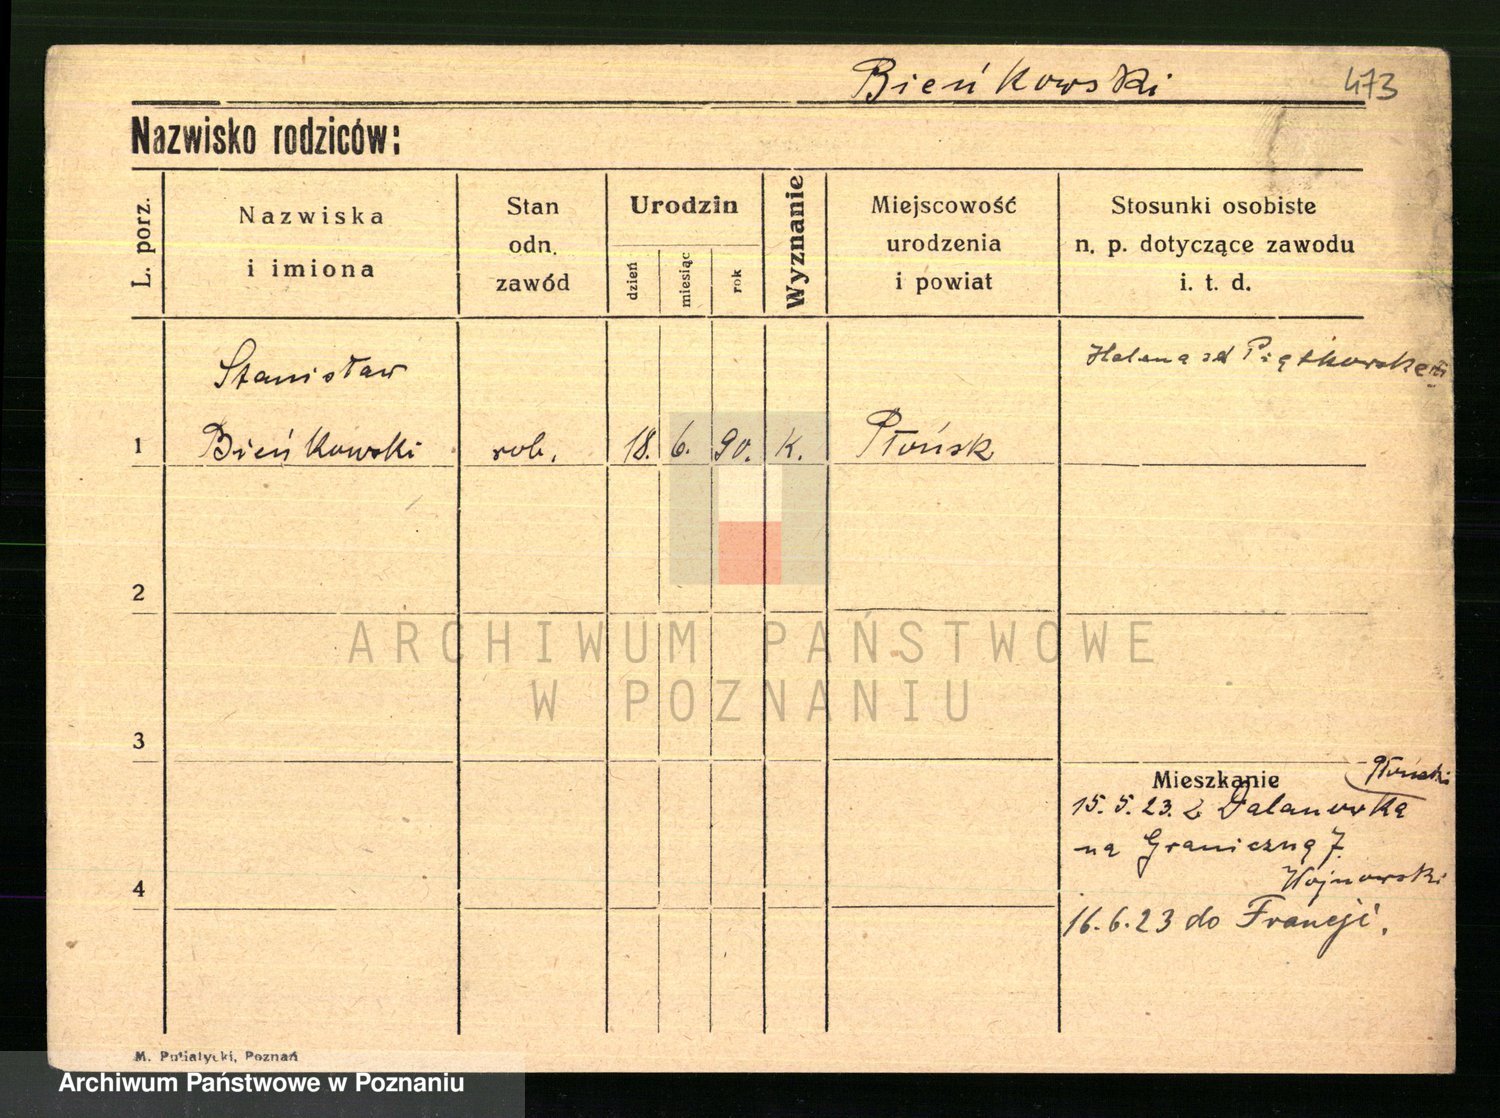 Bieńkowski 473
Nazwisko rodziców:
L. porz.
Nazwiska
i imiona
Stan
odn.
zawód
Urodzin
dzień
miesiąc
rok
Wyznanie
Miejscowość
urodzenia
i powiat
Stosunki osobiste
n. p. dotyczące zawodu
i. t. d.
Stanisław
Helena zd Piątkowska
1 Bieńkowski rob. 18. 6. 90. k. Płońsk
2
ARCHIWUM PAŃSTWOWE
W POZNANIU
3
Mieszkanie
Płoński
15.5.23. z Dalanowka
na Graniczną 7.
Wojnowski
4
16.6.23 do Francji.
M. Putiatycki, Poznań
Archiwum Państwowe w Poznaniu